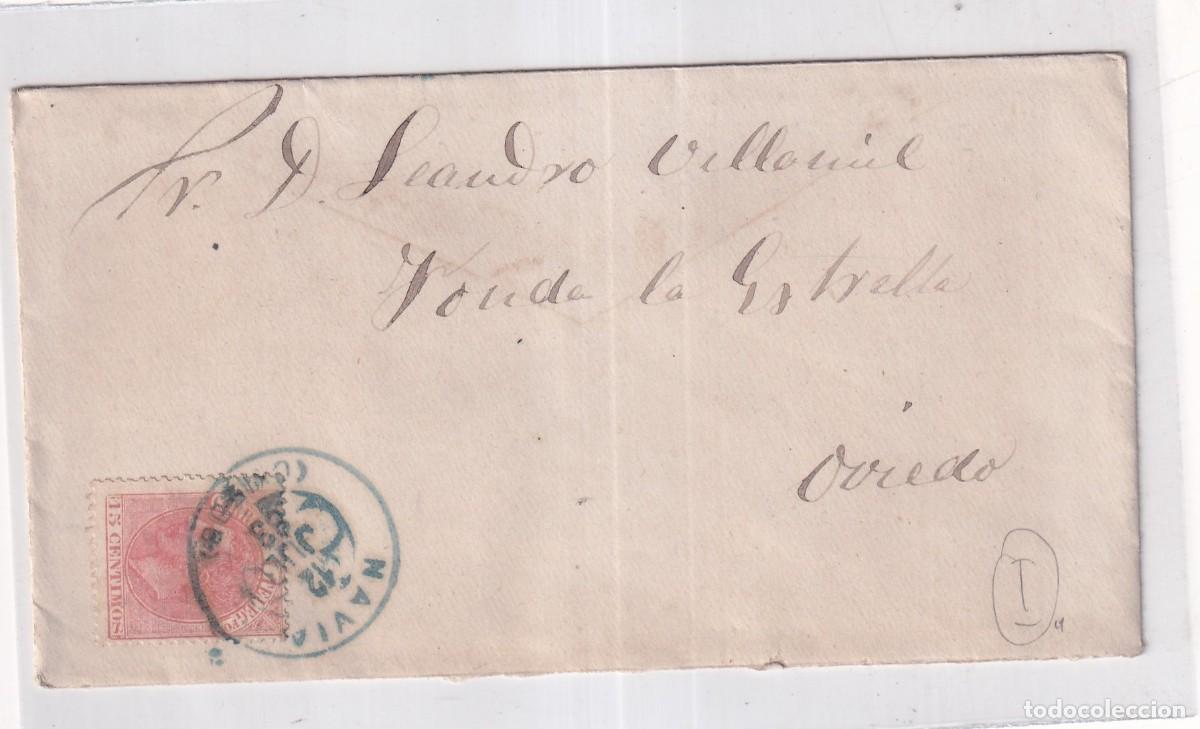 Sr. D. Leandro Villamil
Fonda la Estrella
Oviedo
15 CENTIMOS
NAVIA
12
I
todocoleccion